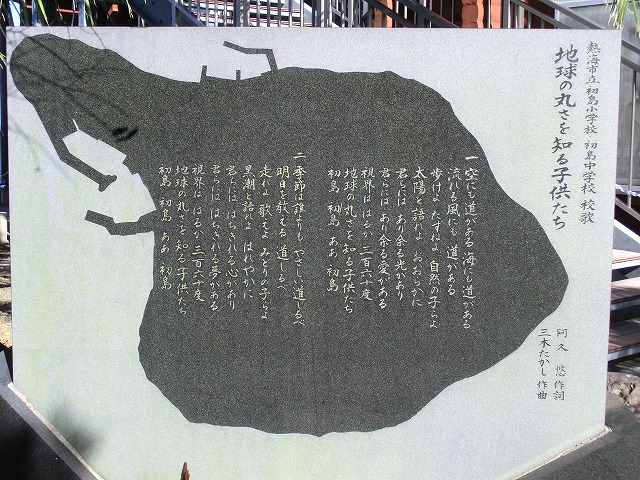 熱海市立 初島小学校・初島中学校 校歌
地球の丸さを知る子供たち
阿久 悠 作詞
三木たかし 作曲
一 空にも道がある 海にも道がある
流れる風にも 道がある
歩けよ たずねよ 自然の子らよ
太陽と語れよ おおらかに
君らには あり余る光があり
君らには あり余る愛がある
視界は はるか 三百六十度
地球の丸さを 知る子供たち
初島 初島 ああ 初島
二 季節は誰よりも やさしい道しるべ
明日を教える 道しるべ
走れよ 歌えよ みどりの子らよ
黒潮と語れよ はれやかに
君らには はちきれる心があり
君らには はちきれる夢がある
視界は はるか 三百六十度
地球の丸さを 知る子供たち
初島 初島 ああ 初島